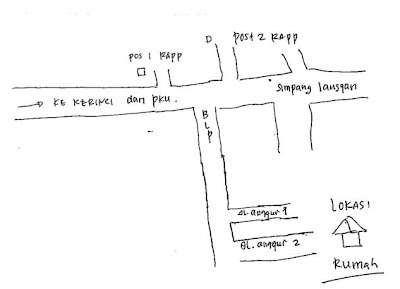 D
POS 1 RAPP
POST 2 RAPP
Simpang Lansgan
→ KE KERINCI dan PKU.
BLP
Jl. anggur 1
Jl. anggur 2
LOKASI
Rumah